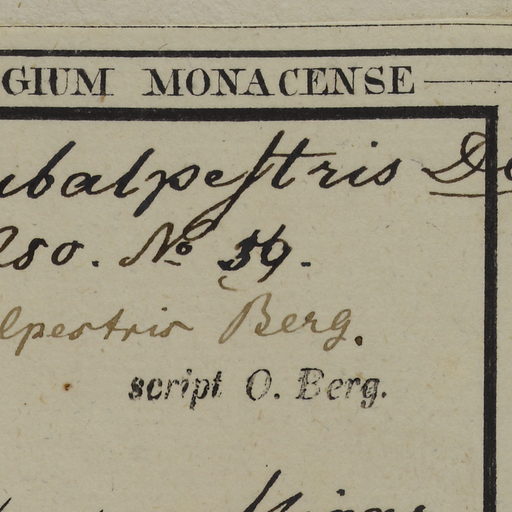 GIUM MONACENSE
ubalpestris De
250. No 59.
lpestris Berg.
script O. Berg.